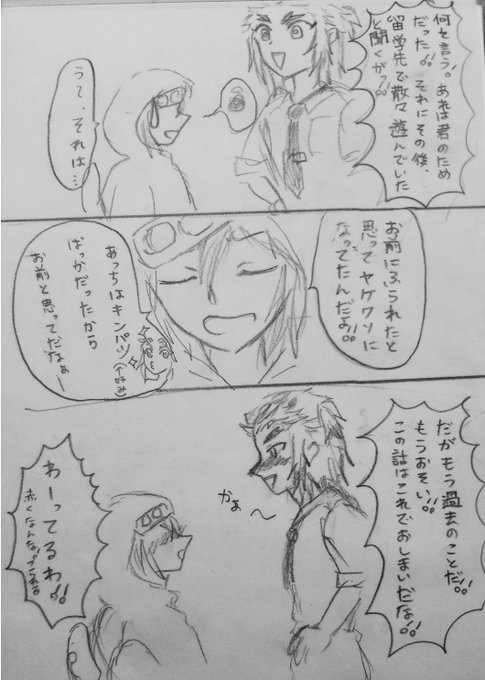 何を言う。あれは君のため
だった!!それにその後、
留学先で散々遊んでいた
と聞くが?!!
うて、それは…
お前にふられたと
思ってヤケクソに
なってたんだよ!!
あっちはキンパツ(不好み)
ばっかだったから
お前と思ってだなぁー
だがもう過去のことだ!!
もうおそい!!
この話はこれでおしまいだな!!
かぁ〜
わーってるわ!!
赤くなんな!!